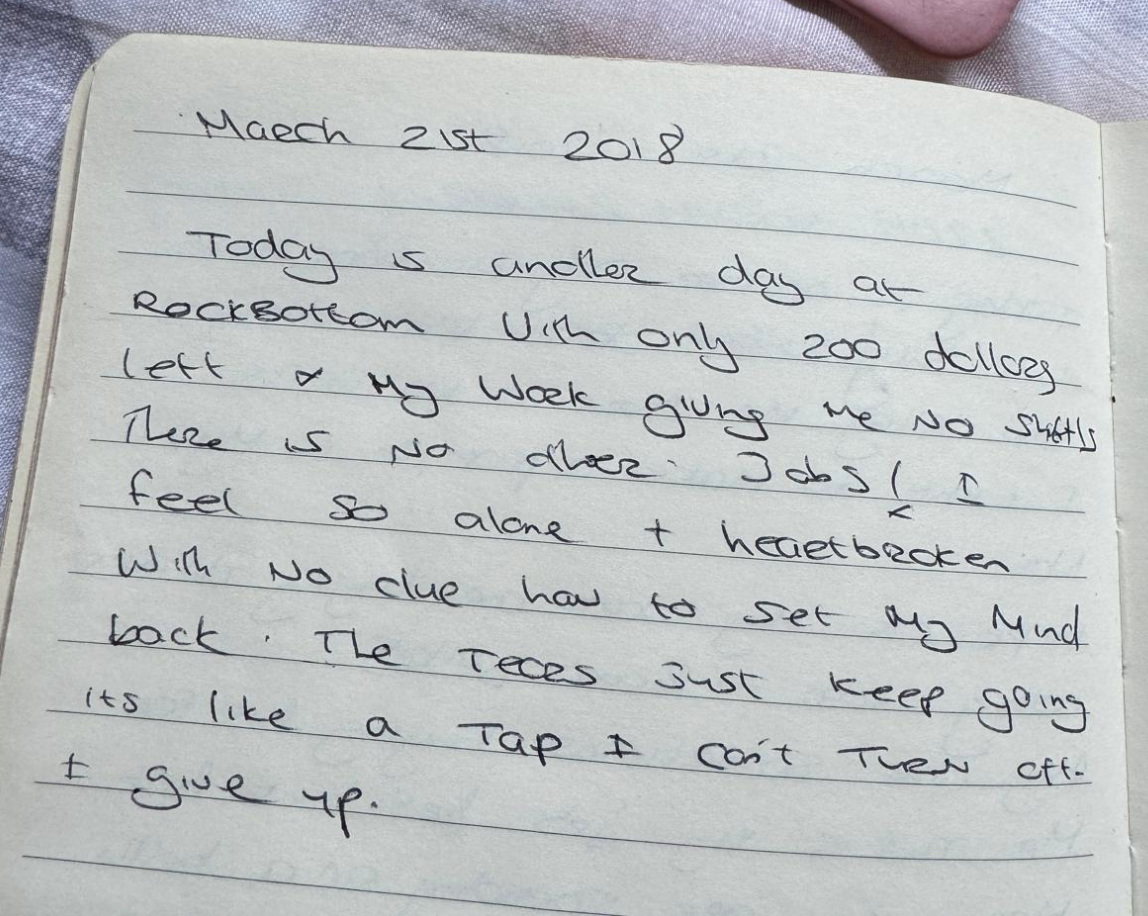 March 21st 2018
Today is another day at
RockBottom With only 200 dollars
left & My Work giving me NO shifts
There is NO other Jobs! I
feel so alone + heartbroken
With NO clue how to set My Mind
back. The Tears Just keep going
its like a Tap I can't Turn off.
I give up.